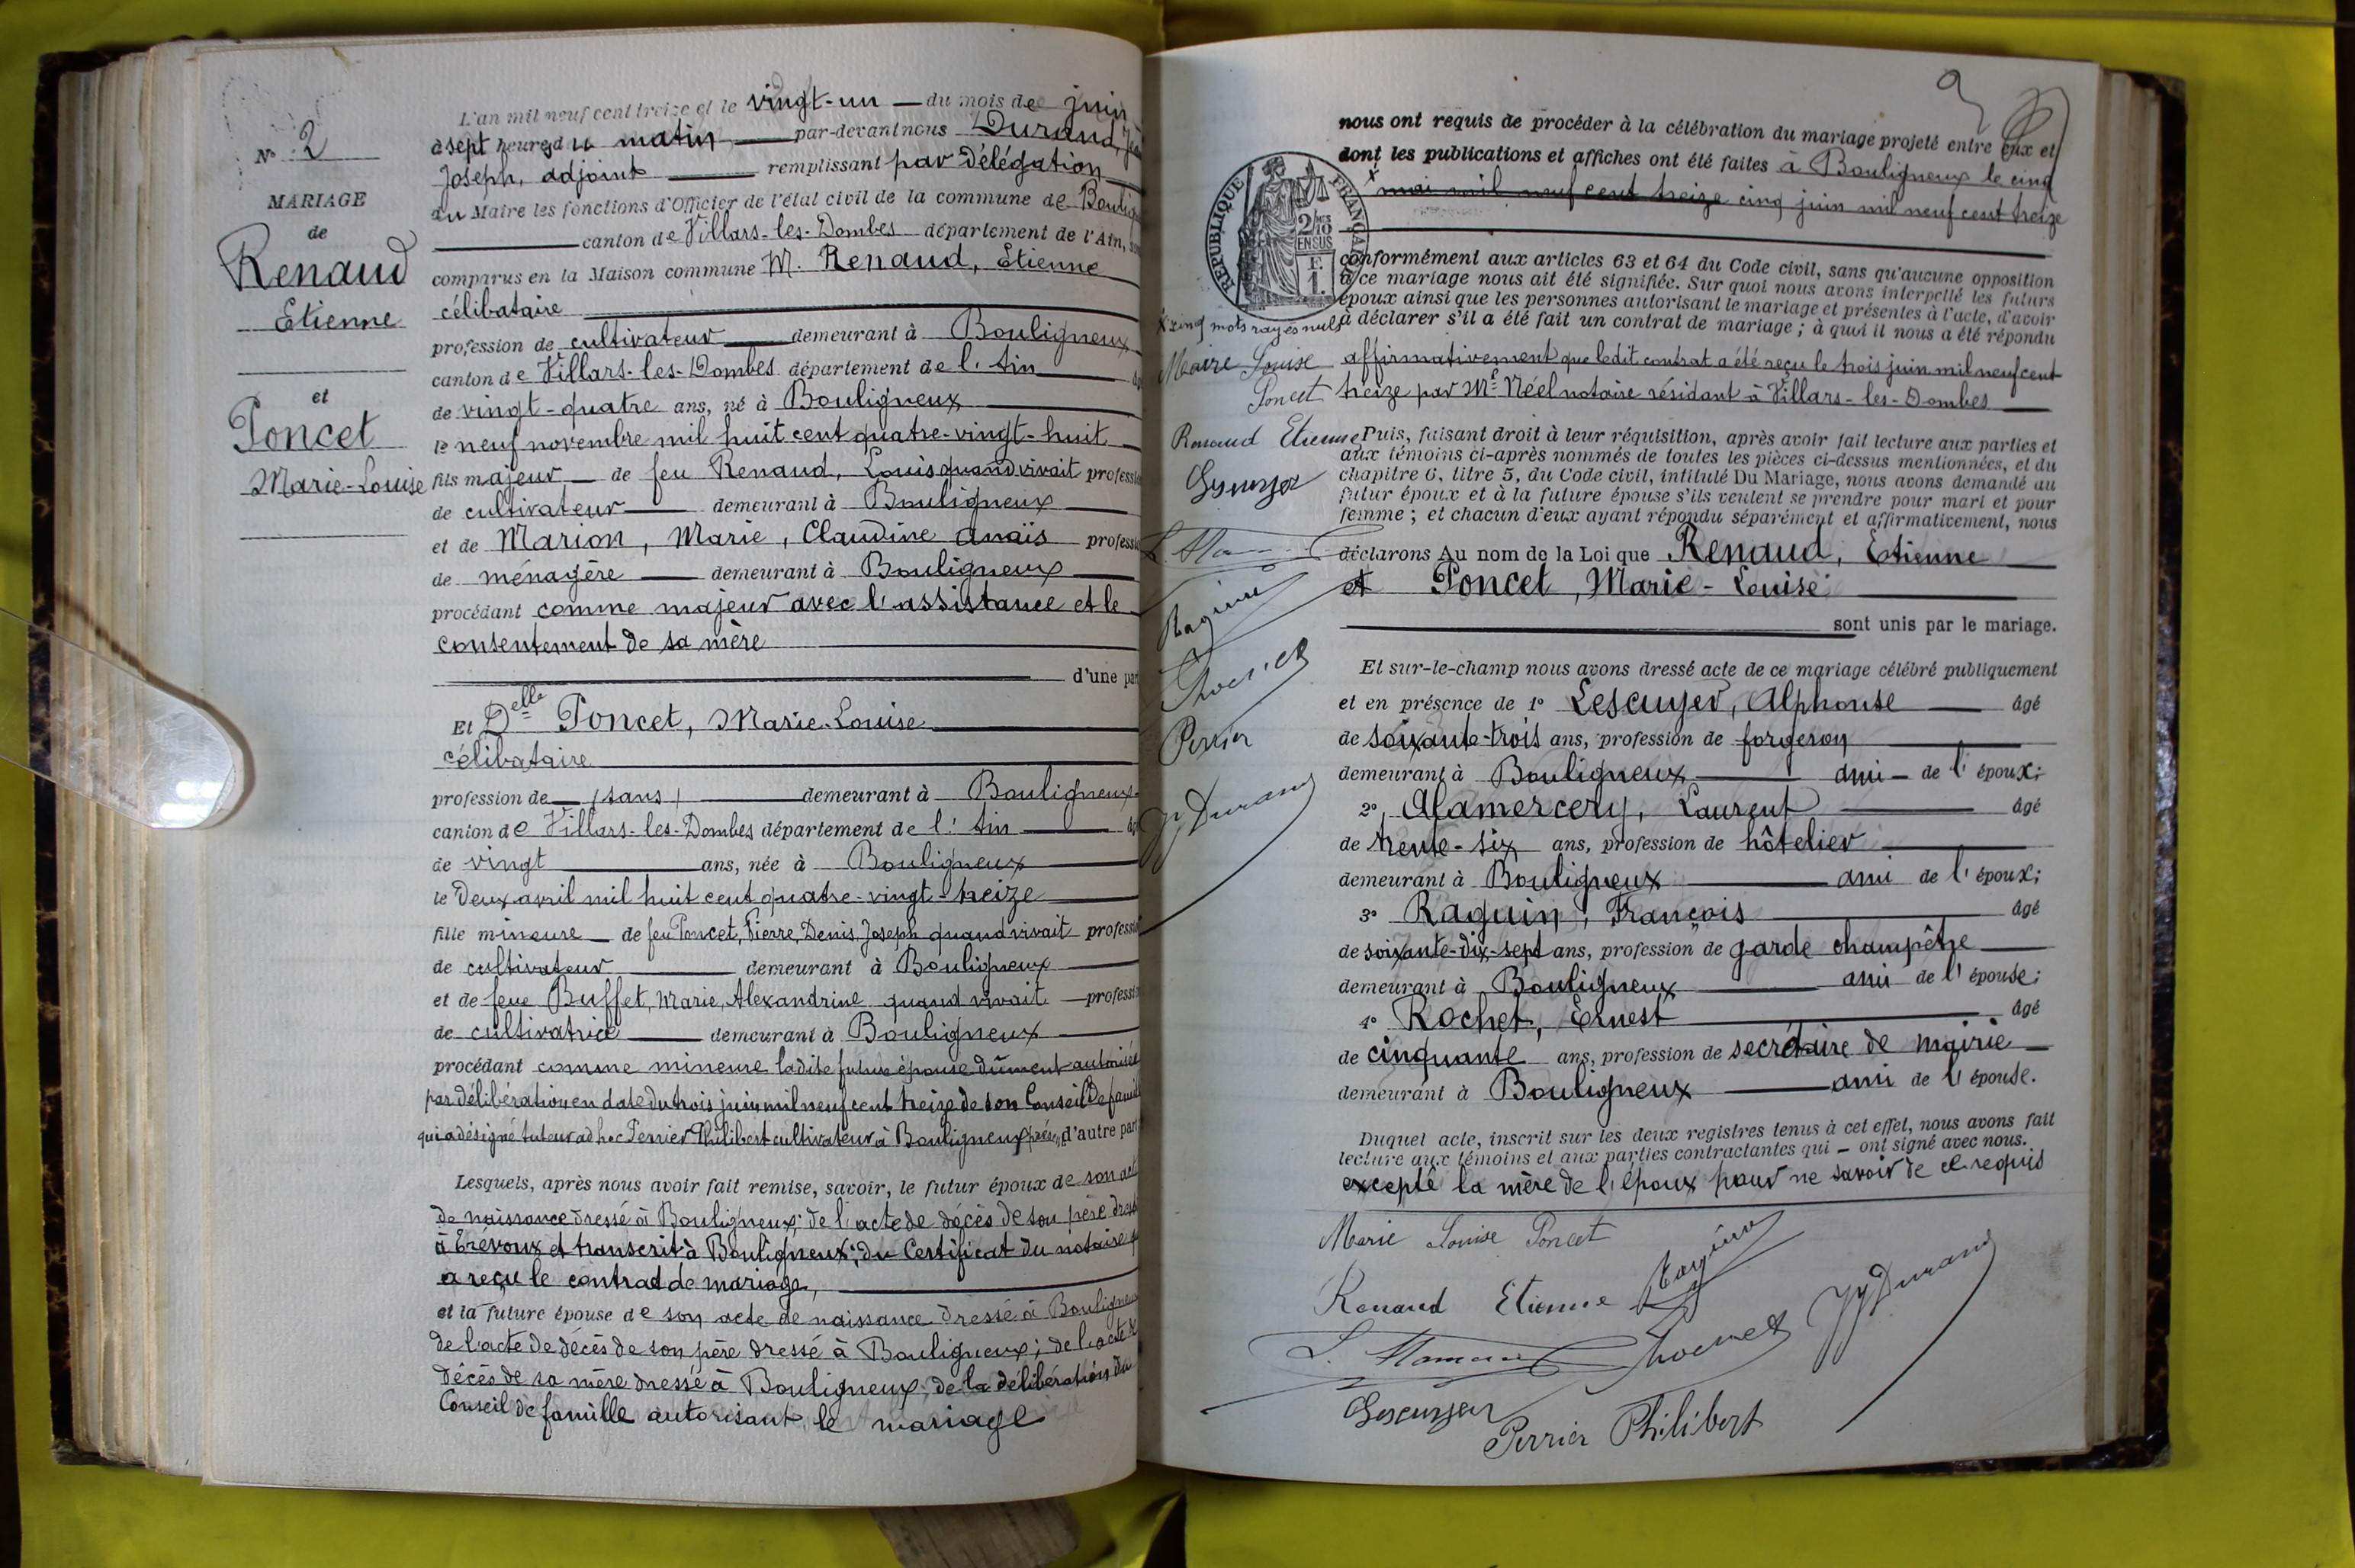 N° 2
MARIAGE
de
Renaud
Etienne
et
Poncet
Marie-Louise
L'an mil neuf cent treize et le vingt-un du mois de juin
à sept heures du matin par-devant nous Durand,
Joseph, adjoint remplissant par délégation
du Maire les fonctions d'Officier de l'état civil de la commune de
canton de Villars-les-Dombes département de l'Ain,
comparus en la Maison commune M. Renaud, Etienne
célibataire
profession de cultivateur demeurant à Bouligneux
canton de Villars-les-Dombes département de l'Ain
de vingt-quatre ans, né à Bouligneux
le neuf novembre mil huit cent quatre-vingt-huit
fils majeur de feu Renaud, Louis quand vivait
de cultivateur demeurant à Bouligneux
et de Marion, Marie, Claudine Anaïs
de ménagère demeurant à Bouligneux
procédant comme majeur avec l'assistance et le
consentement de sa mère
d'une
Et Delle Poncet, Marie-Louise
célibataire
profession de (sans) demeurant à Bouligneux
canton de Villars-les-Dombes département de l'Ain
de vingt ans, née à Bouligneux
le deux avril mil huit cent quatre-vingt-treize
fille mineure de feu Poncet, Pierre, Denis, Joseph quand vivait
de cultivateur demeurant à Bouligneux
et de feue Buffet, Marie, Alexandrine quand vivait
de cultivatrice demeurant à Bouligneux
procédant comme mineure ladite future épouse dûment autorisée
par délibération en date du trois juin mil neuf cent treize de son Conseil de
qui a désigné tuteur ad hoc Perrier Philibert cultivateur à Bouligneux d'autre part
Lesquels, après nous avoir fait remise, savoir, le futur époux de son
de naissance dressé à Bouligneux; de l'acte de décès de son père
à Trévoux et transcrit à Bouligneux; du Certificat du notaire
a reçu le contrat de mariage,
et la future épouse de son acte de naissance dressé à
de l'acte de décès de son père dressé à Bouligneux; de l'acte de
décès de sa mère dressé à Bouligneux; de la délibération du
Conseil de famille autorisant le mariage
nous ont requis de procéder à la célébration du mariage projeté entre eux et
dont les publications et affiches ont été faites à Bouligneux le cinq
x mai mil neuf cent treize cinq juin mil neuf cent treize
REPUBLIQUE FRANÇAISE
2/10 EN SUS
F. 1.
conformément aux articles 63 et 64 du Code civil, sans qu'aucune opposition
à ce mariage nous ait été signifiée. Sur quoi nous avons interpellé les futurs
époux ainsi que les personnes autorisant le mariage et présentes à l'acte, d'avoir
à déclarer s'il a été fait un contrat de mariage; à quoi il nous a été répondu
affirmativement que ledit contrat a été reçu le trois juin mil neuf cent
treize par Me Néel notaire résidant à Villars-les-Dombes
Puis, faisant droit à leur réquisition, après avoir fait lecture aux parties et
aux témoins ci-après nommés de toutes les pièces ci-dessus mentionnées, et du
chapitre 6, titre 5, du Code civil, intitulé Du Mariage, nous avons demandé au
futur époux et à la future épouse s'ils veulent se prendre pour mari et pour
femme; et chacun d'eux ayant répondu séparément et affirmativement, nous
déclarons Au nom de la Loi que Renaud, Etienne
et Poncet, Marie-Louise
sont unis par le mariage.
Et sur-le-champ nous avons dressé acte de ce mariage célébré publiquement
et en présence de 1° Lescuyer, Alphonse âgé
de soixante-trois ans, profession de forgeron
demeurant à Bouligneux ami de l'époux;
2° Alamercery, Laurent âgé
de trente-six ans, profession de hôtelier
demeurant à Bouligneux ami de l'époux;
3° Raguin, François âgé
de soixante-dix-sept ans, profession de garde champêtre
demeurant à Bouligneux ami de l'épouse;
4° Rochet, Ernest âgé
de cinquante ans, profession de secrétaire de mairie
demeurant à Bouligneux ami de l'épouse.
Duquel acte, inscrit sur les deux registres tenus à cet effet, nous avons fait
lecture aux témoins et aux parties contractantes qui ont signé avec nous.
excepté la mère de l'époux pour ne savoir de ce requis
x cinq mots rayés nuls
Marie Louise
Poncet
Renaud Etienne
Lescuyer
Raguin
Rochet
Perrier
J Durand
Marie Louise Poncet
Renaud Etienne Raguin
Rochet JJ Durand
Lescuyer
Perrier Philibert